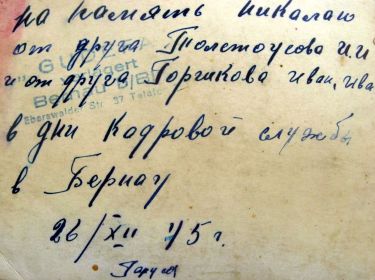 на память Николаю
от друга Толстоусова И.И
и от друга Горшкова Иван. Ива
в дни Кадровой службы
в Бернау
26/XII 45 г.
Bernau b/B
Eberswalder Str. 37